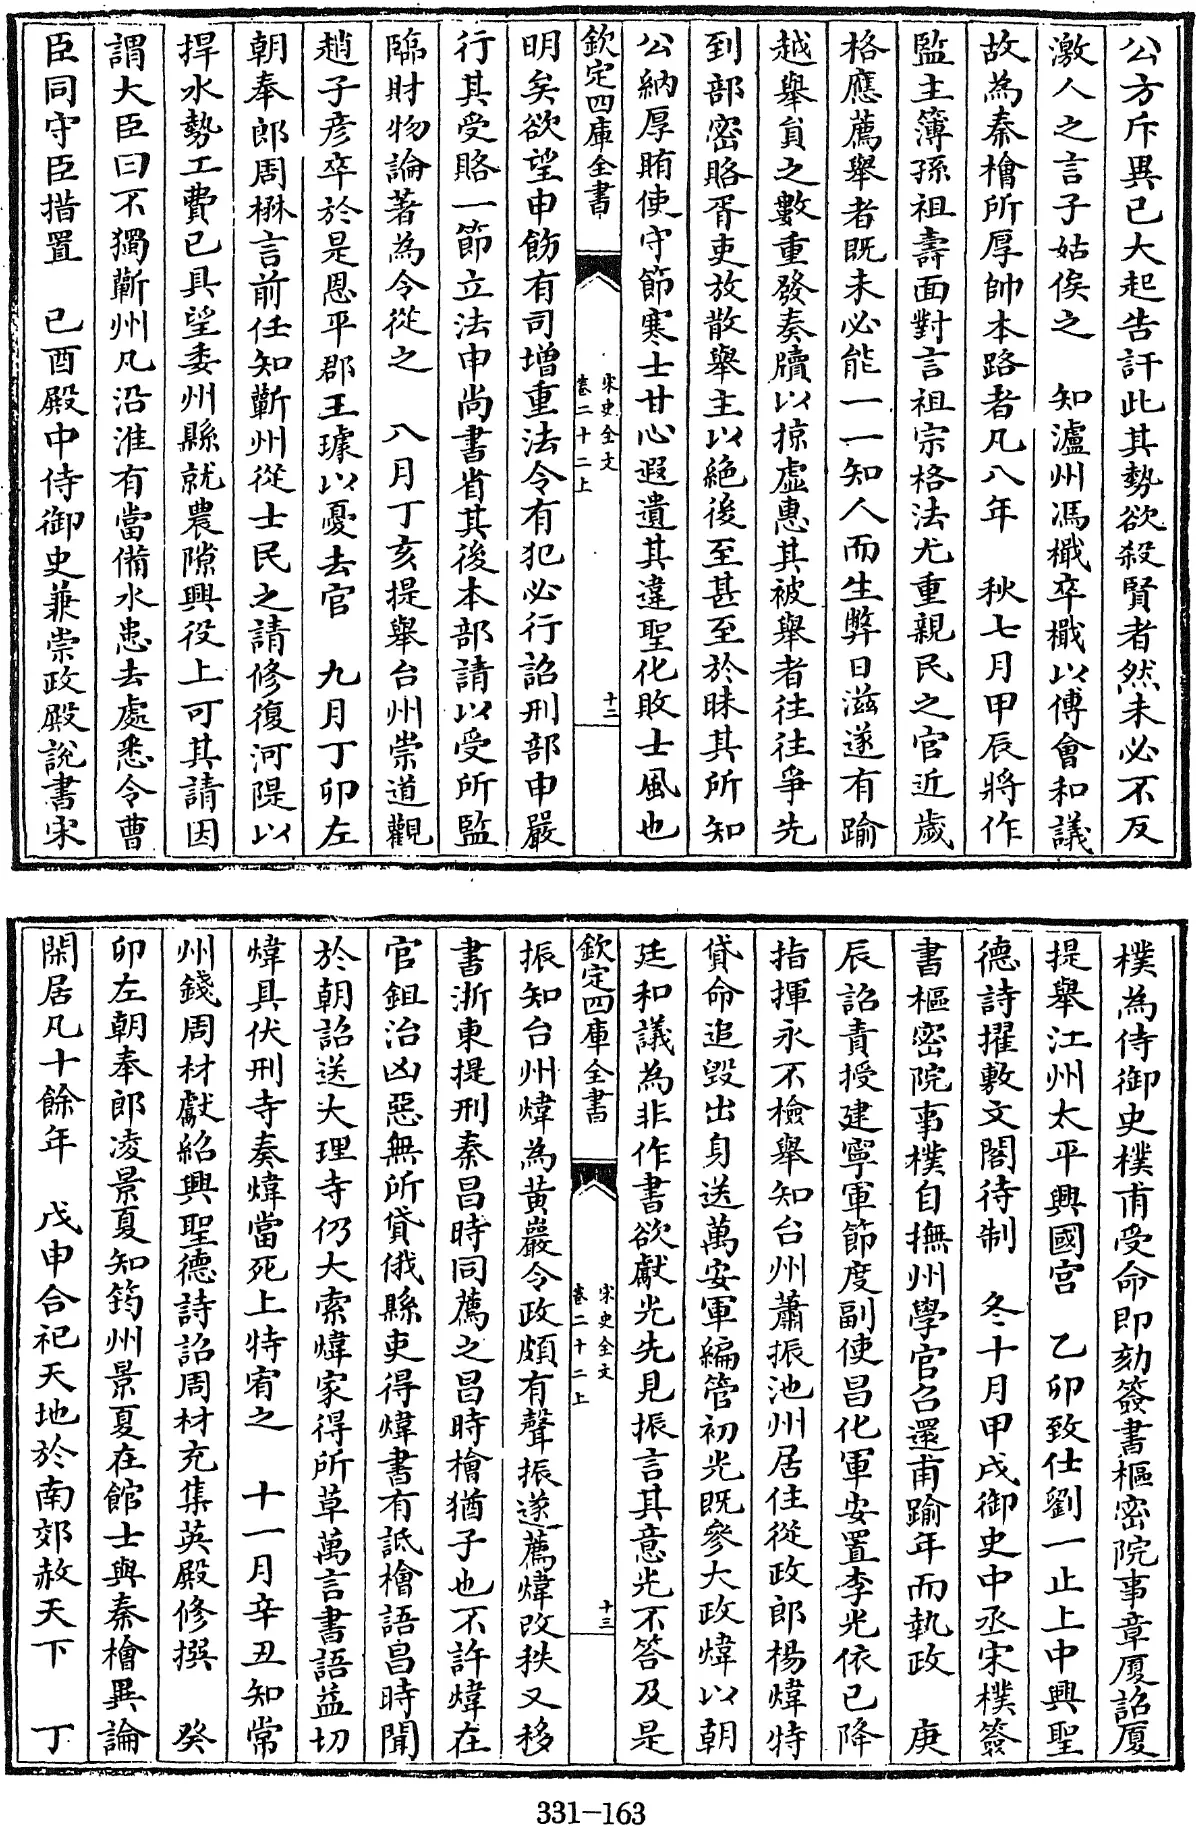 公方斥異已大起告訐此其勢欲殺賢者然未必不反
激人之言子姑俟之　知瀘州馮檝卒檝以傅會和議
故為秦檜所厚帥本路者凡八年　秋七月甲辰將作
監主簿孫祖壽面對言祖宗格法尤重親民之官近歲
格應薦舉者既未必能一一知人而生弊日滋遂有踰
越舉負之數重發奏牘以掠虛惠其被舉者往往爭先
到部密賂胥吏放散舉主以絶後至甚至於昧其所知
公納厚賄使守節寒士甘心遐遺其違聖化敗士風也
欽定四庫全書
宋史全文
卷二十二上
十二
明矣欲望申飭有司增重法令有犯必行詔刑部申嚴
行其受賂一節立法申尚書省其後本部請以受所監
臨財物論著為令從之　八月丁亥提舉台州崇道觀
趙子彦卒於是恩平郡王璩以憂去官　九月丁卯左
朝奉郎周楙言前任知蘄州從士民之請修復河隄以
捍水勢工費已具望委州縣就農隙興役上可其請因
謂大臣曰不獨蘄州凡沿淮有當備水患去處悉令曹
臣同守臣措置　已酉殿中侍御史兼崇政殿説書宋
樸為侍御史樸甫受命即劾簽書樞密院事章厦詔厦
提舉江州太平興國宫　乙卯致仕劉一止上中興聖
德詩擢敷文閣待制　冬十月甲戌御史中丞宋樸簽
書樞密院事樸自撫州學官召還甫踰年而執政　庚
辰詔責授建寧軍節度副使昌化軍安置李光依已降
指揮永不檢舉知台州蕭振池州居住從政郎楊煒特
貸命追毁出身送萬安軍編管初光既參大政煒以朝
廷和議為非作書欲獻光先見振言其意光不答及是
欽定四庫全書
宋史全文
卷二十二上
十三
振知台州煒為黄巖令政頗有聲振遂薦煒改秩又移
書浙東提刑秦昌時同薦之昌時檜猶子也不許煒在
官鉏治凶惡無所貸俄縣吏得煒書有詆檜語昌時聞
於朝詔送大理寺仍大索煒家得所草萬言書語益切
煒具伏刑寺奏煒當死上特宥之　十一月辛丑知常
州錢周材獻紹興聖德詩詔周材充集英殿修撰　癸
卯左朝奉郎凌景夏知筠州景夏在館士與秦檜異論
閑居凡十餘年　戊申合祀天地於南郊赦天下　丁
331-163